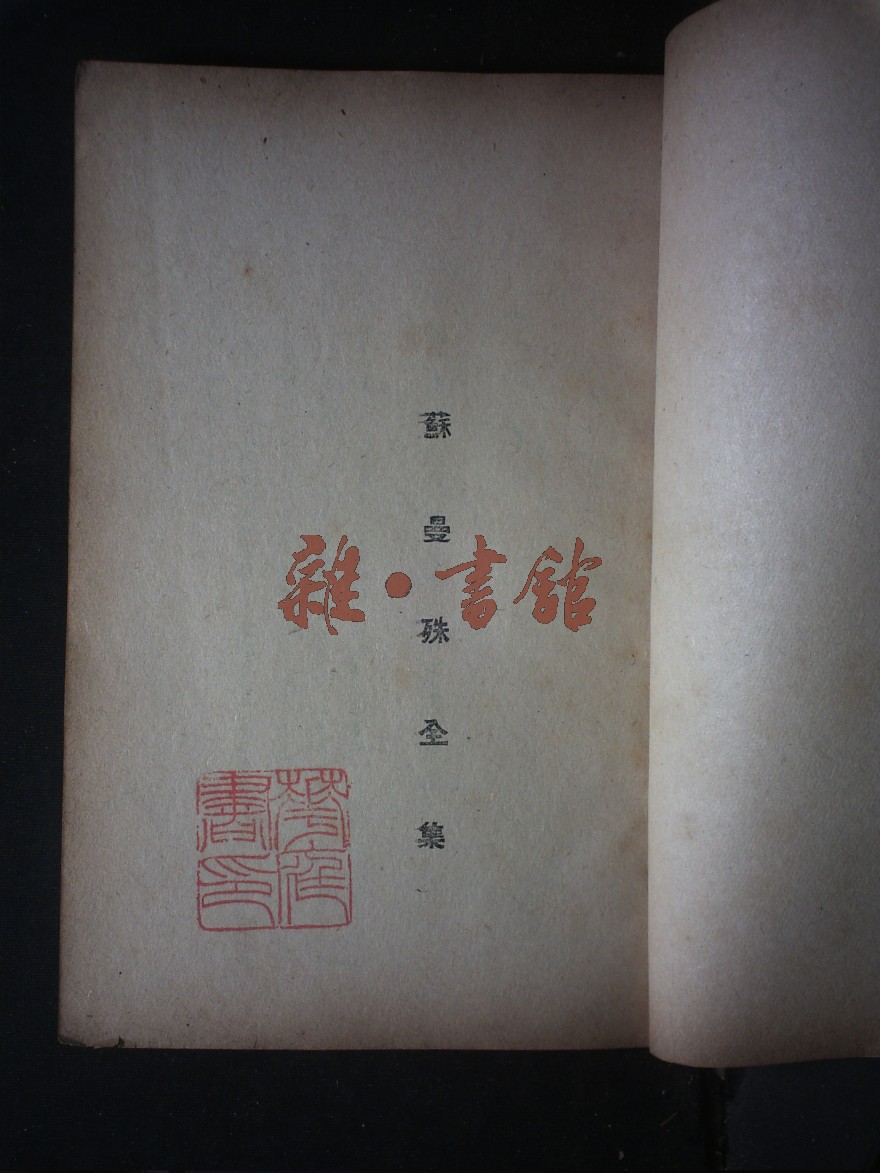 蘇曼殊全集
雜·書館